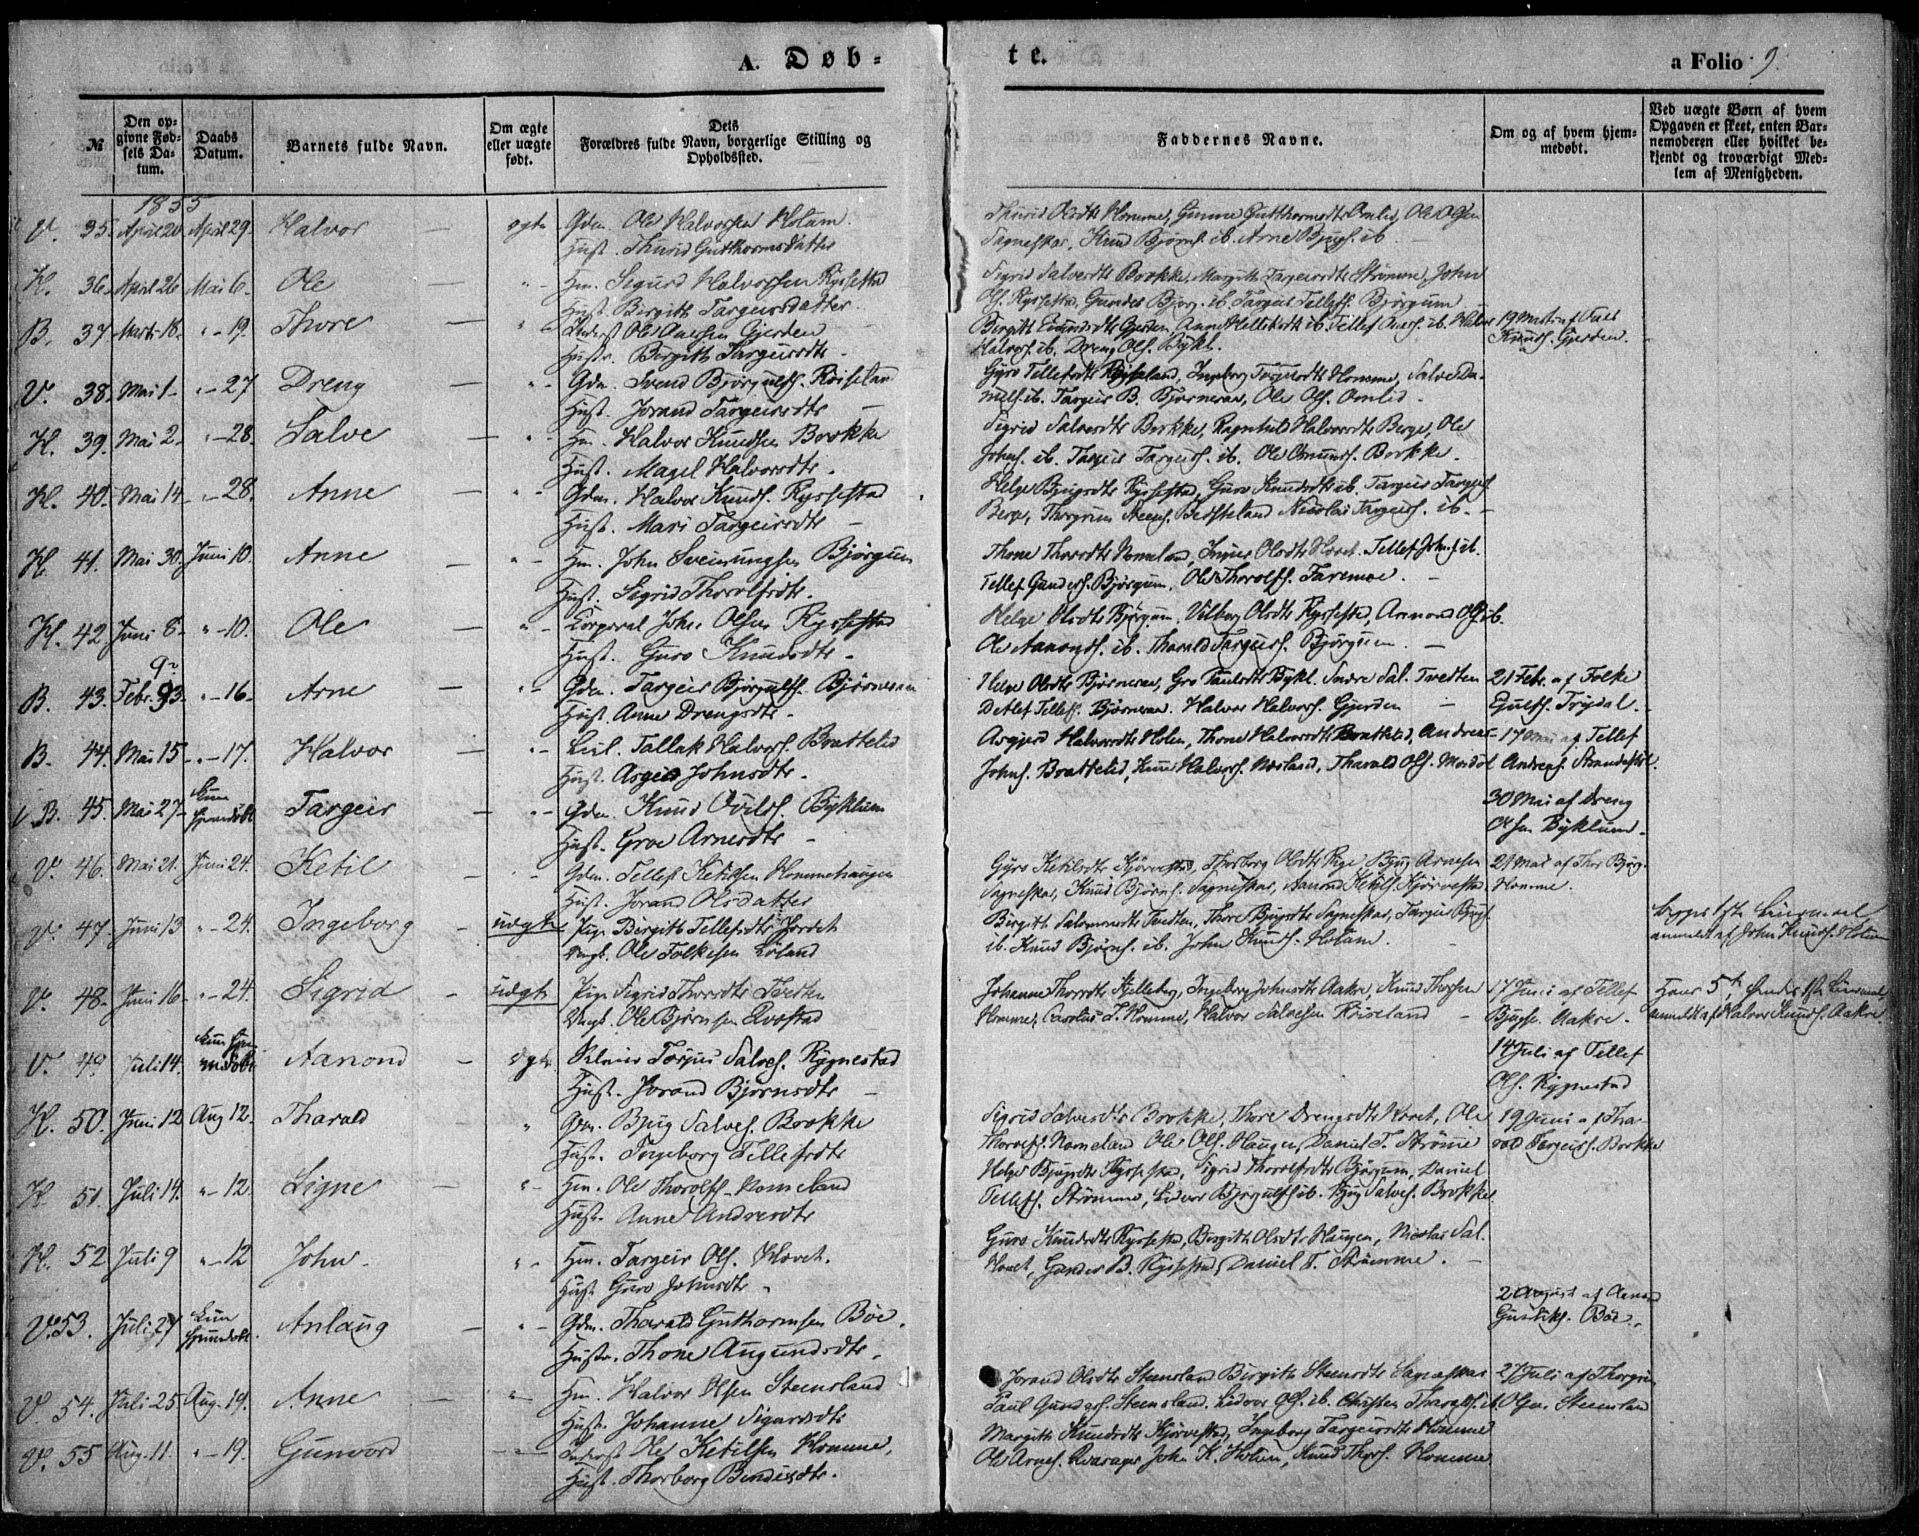 A. Døb-
te.
a Folio 9.
№
Den opgivne Fødsels Datum.
Daabs Datum.
Barnets fulde Navn.
Om ægte eller uægte født.
Dets Forældres fulde Navn, borgerlige Stilling og Opholdssted.
Faddernes Navne.
Om og af hvem hjemmedøbt.
Ved uægte Børn af hvem Opgaven er skeet, enten Barnemoderen eller hvilket bekjendt og troværdigt Medlem af Menigheden.
1855
V. 35. April 20. April 29. Halvor — ægte Gdm. Ole Halvorsen Holum
Hust. Thurid Gutthormsdatter
Thurid Olsdtr Homme, Gunne Gutthormsdtr Omlid, Ole Olsen
Sagneskar, Knud Bjørns. ib. Arne Bjugs. ib.
H. 36. April 26 Mai 6. Ole — " - Hm. Sigurd Halvorssen Ryssestad
Hust. Birgith Targeirsdatter
Sigrid Salvesdtr Brokke, Margith Targeirsdtr Strømme, John
Ols. Ryssestad, Gunder Bjørg. ib. Targeir Tellefs. Bjørgum
B. 37. Marts 18. " - 19. Thore — Ole Gjerden
Hustr. Birgith Targeirsdtr
Halvors. ib. Dreng Ols. Bykl.
19 Marts af
Knuds. Gjerden.
V. 38. Mai 1 - " - 27 Dreng — " - Gdm. Svend Bjørgulfs. Røiseland
Hust. Jorand Targeirsdtr —
Gyro Tellefsdtr Røiseland, Ingeborg Homme, Salve Da-
niels. ib. Targeir B. Bjørnaraa, Ole Ols. Omlid.
H. 39. Mai 2. " - 28. Salve — " - Hm. Halvor Knudsen Brokke
Hust. Magel Halvorsdtr.
Sigrid Salvesdtr Brokke, Ragnhild Halvorsdtr Berge, Ole
Johns. ib. Targeir Targeirs. ib. Ole Omunds. Brokke.
H. 40. Mai 14. " - 28. Anne — " - Gdm. Halvor Knuds. Ryssestad
Hust. Mari Targeirsdtr —
Helge Bjugsdtr Ryssestad, Guro Knudsdtr ib. Targeir Targeirs
Berge, Thorgrim Nicolai Targeirs. ib.
H. 41. Mai 30. Juni 10. Anne — " - Hm. John Sveinungsen Bjørgum
Hust. Sigrid Thorolfsdtr.
Thone Thorsdtr Nomeland, Olsdtr Hovet. Tellef Johns. ib.
Tellef Gunders. Bjørgum, Ole Thorolfs. Faremoe.
H. 42. Juni 8. " - 10. Ole — " - Korporal John Olsen Ryssestad
Hust. Guro Knudsdtr
Helge Olsdtr Bjørgum, Vilborg Olsdtr Ryssestad, Aanond Ols ib.
Ole Aanonds. ib. Tharald Targeirs. Bjørgum.
B. 43. Febr. " - 16. Arne — " - Gdm. Targeir Bjørgulfs. Bjørnaraa
Hust. Anne Drengsdtr
Helge Olsdtr Bjørnaraa, Gro Paulsdtr Bykl. Sal. Tvedten
Detlef Tellefs. Bjørnaraa. Halvor Halvors. Gjerden
21 Febr. af Folke
Eyulfs. Trydal.
B. 44. Mai 15 - " - 17. Halvor — " - Leil. Tallak Halvors. Brattelid
Hust. Asgerd Johnsdtr
Asgjerd Halvorsdtr Holen, Thone Halvorsdtr Brattelid, Andreas
Johns. Brattelid, Knud Halvors. Nesland, Tharald Ols.
17 Mai af Tellef
Andreas.
B. 45. Mai 27 - Targeir — " - Gdm. Knud Byklum
Hust. Groe Arnesdtr
30 Mai af Dreng
Olsen Byklum.
V. 46. Mai 21. Juni 24. Ketil — " - Gdm. Tellef Ketilsen Hommehaugen
Hust. Jorand Olsdatter
Gyro Ketilsdtr Kjørvestad, Thorborg Olsdtr Rige, Bjug Arnesen
Sagneskar, Knud Bjørns. Sagneskar, Aanond Ketils. Kjørvestad.
21 Mai af Thor Bjørg.
Homme.
V. 47. Juni 13 " - 24. Ingeborg — uægte Pige Birgith Tellefsdtr Jordet
Ungk. Ole Folkesen Løland
Birgith Salomonsdtr Tvedten, Thore Bjugsdtr Sagneskar, Targeir Bjugs.
ib. Knud Bjørns. ib. John Knuds. Holum.
anmeldt af John Knuds. Holum
V. 48. Juni 16 - " - 24. Sigrid — uægte Pige Sigrid Thorsdtr Tvedten
Ungk. Ole Bjørnsen Qvostad
Johanne Thorsdtr Kjelleberg, Ingeborg Johnsdtr Aakre, Knud Thorsen
Homme, Carolus T. Homme, Halvor Salvesen Røiseland
17 Juni af Tellef
Bjugs. Aakre.
anmeldt af Halvor Knuds. Aakre.
V. 49. Juli 14. Aanond — ægte Torjus Salves. Rygnestad
Hust. Jorand Bjørnsdtr
14 Juli af Tellef
Ols. Rygnestad
H. 50. Juni 12 Aug 12. Tharald " Gdm. Bjug Salves. Brokke
Hust. Ingeborg Tellefsdtr
Sigrid Salvesdtr Brokke, Thore Drengsdtr Hovet, Ole
Thorolfs. Nomeland Ole Ols. Haugen, Daniel T. Strømme
19 Juni af Tha-
rald Targeirs. Brokke
H. 51. Juli 14. " - 12. Signe — " - Hm. Ole Thorolfs. Nomeland
Hust. Anne Andersdtr
Helge Bjugsdtr Ryssestad, Sigrid Thorolfsdtr Bjørgum, Daniel
Tellefs. Strømme, Lidvor Bjørgulfs. ib. Bjug Salves. Brokke
H. 52 Juli 9 " - 12 John " - Hm. Targeir Ols. Hovet.
Hust. Guro Johnsdtr
Guro Knudsdtr Ryssestad, Birgith Olsdtr Haugen, Nicolai Sal.
Hovet, Gunder B. Ryssestad, Daniel T. Strømme.
V. 53. Juli 27 Anlaug — " - Gdm. Tharald Guthormsen Bøe.
Hustr. Thone Augundsdtr
2 August af Aanon
Gunliks. Bøe.
V. 54. Juli 25. Aug. 19. Anne — " Hm. Halvor Olsen Steensland
Hust. Johanne Sigurdsdtr
Jorand Olsdtr Steensland Birgith Steensdtr
Paul Gunders. Steensland. Lidvor Ols. ib. Christen Tharalds. ib.
27 Juli af Thorgrim
Olsen Steensland
V. 55 Aug. 11. " - 19. Gunvord Ole Ketilsen Homme,
Hust. Thorborg Bendiksdtr.
Margith Knudsdtr Kjørvestad, Ingeborg Targeirsdtr Homme
Ole Arnes. Kvarager John K. Holum, Knud Thors. Homme